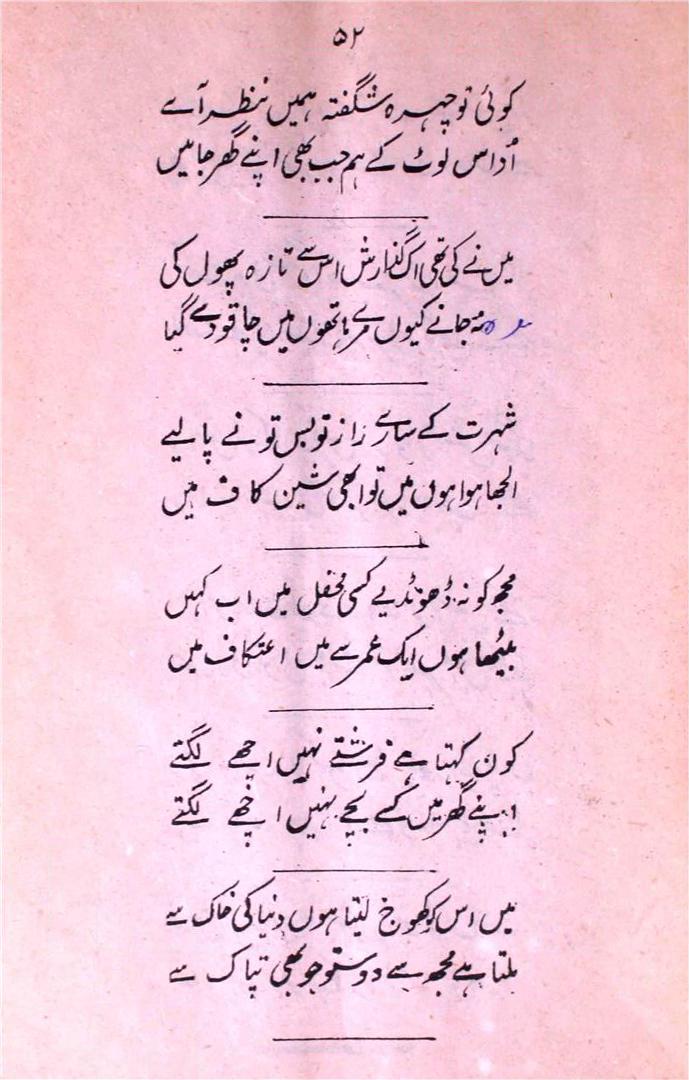 ۵۲
کوئی تو چہرہ شگفتہ ہمیں نظر آے
اُداس لوٹ کے ہم جب بھی اپنے گھر جائیں
میں نے کی تھی اک گذارش اس سے تازہ پھول کی
نہ جانے کیوں مرے ہاتھوں میں چاقو دے گیا
شہرت کے سارے راز تو بس تو نے پالیے
الجھا ہوا ہوں میں تو ابھی شین کاف میں
مجھ کو نہ ڈھونڈیے کسی محفل میں اب کہیں
بیٹھا ہوں ایک عمر سے میں اعتکاف میں
کون کہتا ہے فرشتے نہیں اچھے لگتے
اپنے گھر میں کسے بچے نہیں اچھے لگتے
میں اس کو کھوج لیتا ہوں دنیا کی خاک سے
ملتا ہے مجھ سے دوستو جو بھی تپاک سے